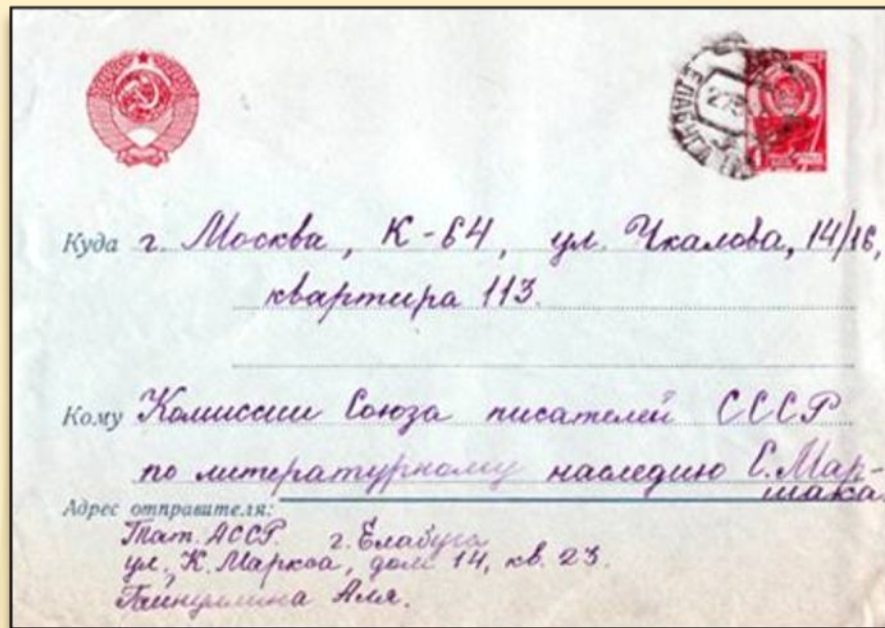 ЕЛАБУГА
Куда г. Москва, К-64, ул. Чкалова, 14/16,
квартира 113.
Кому Комиссии Союза писателей СССР
по литературному наследию С. Мар-
шака.
Адрес отправителя:
Тат. АССР. г. Елабуга
ул. К. Маркса, дом 14, кв. 23.
Аля.